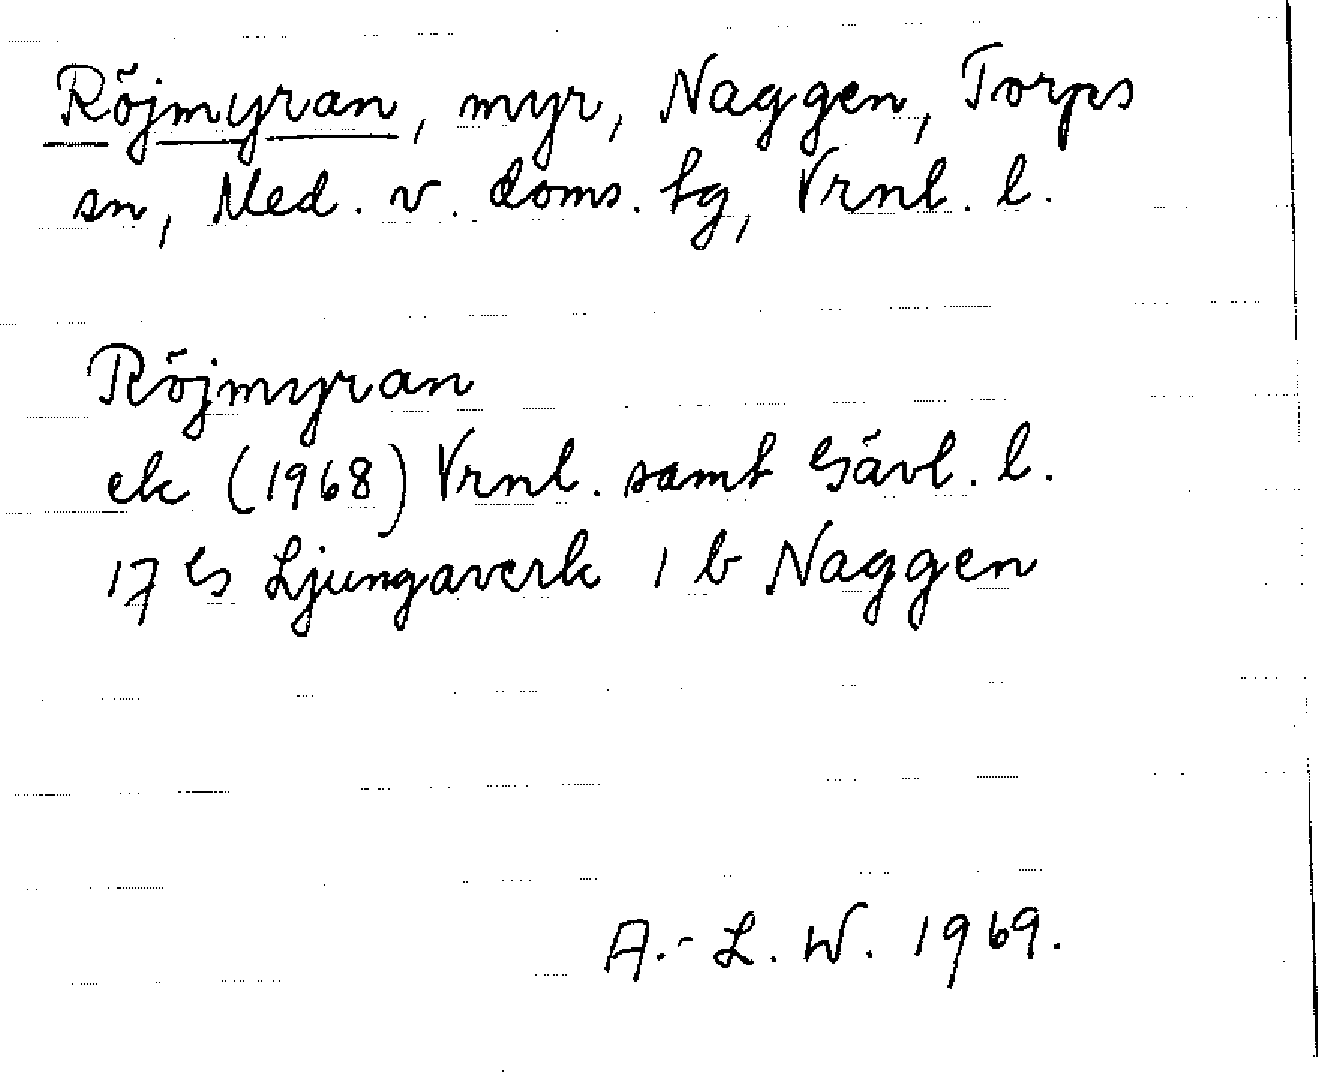 Röjmyran, myr, Naggen, Torps
sn, Med. v. doms. tg, Vrnl. l.
Röjmyran
ek (1968) Vrnl. samt Gävl. l.
17 G Ljungaverk 1 b Naggen
A.-L. W. 1969.